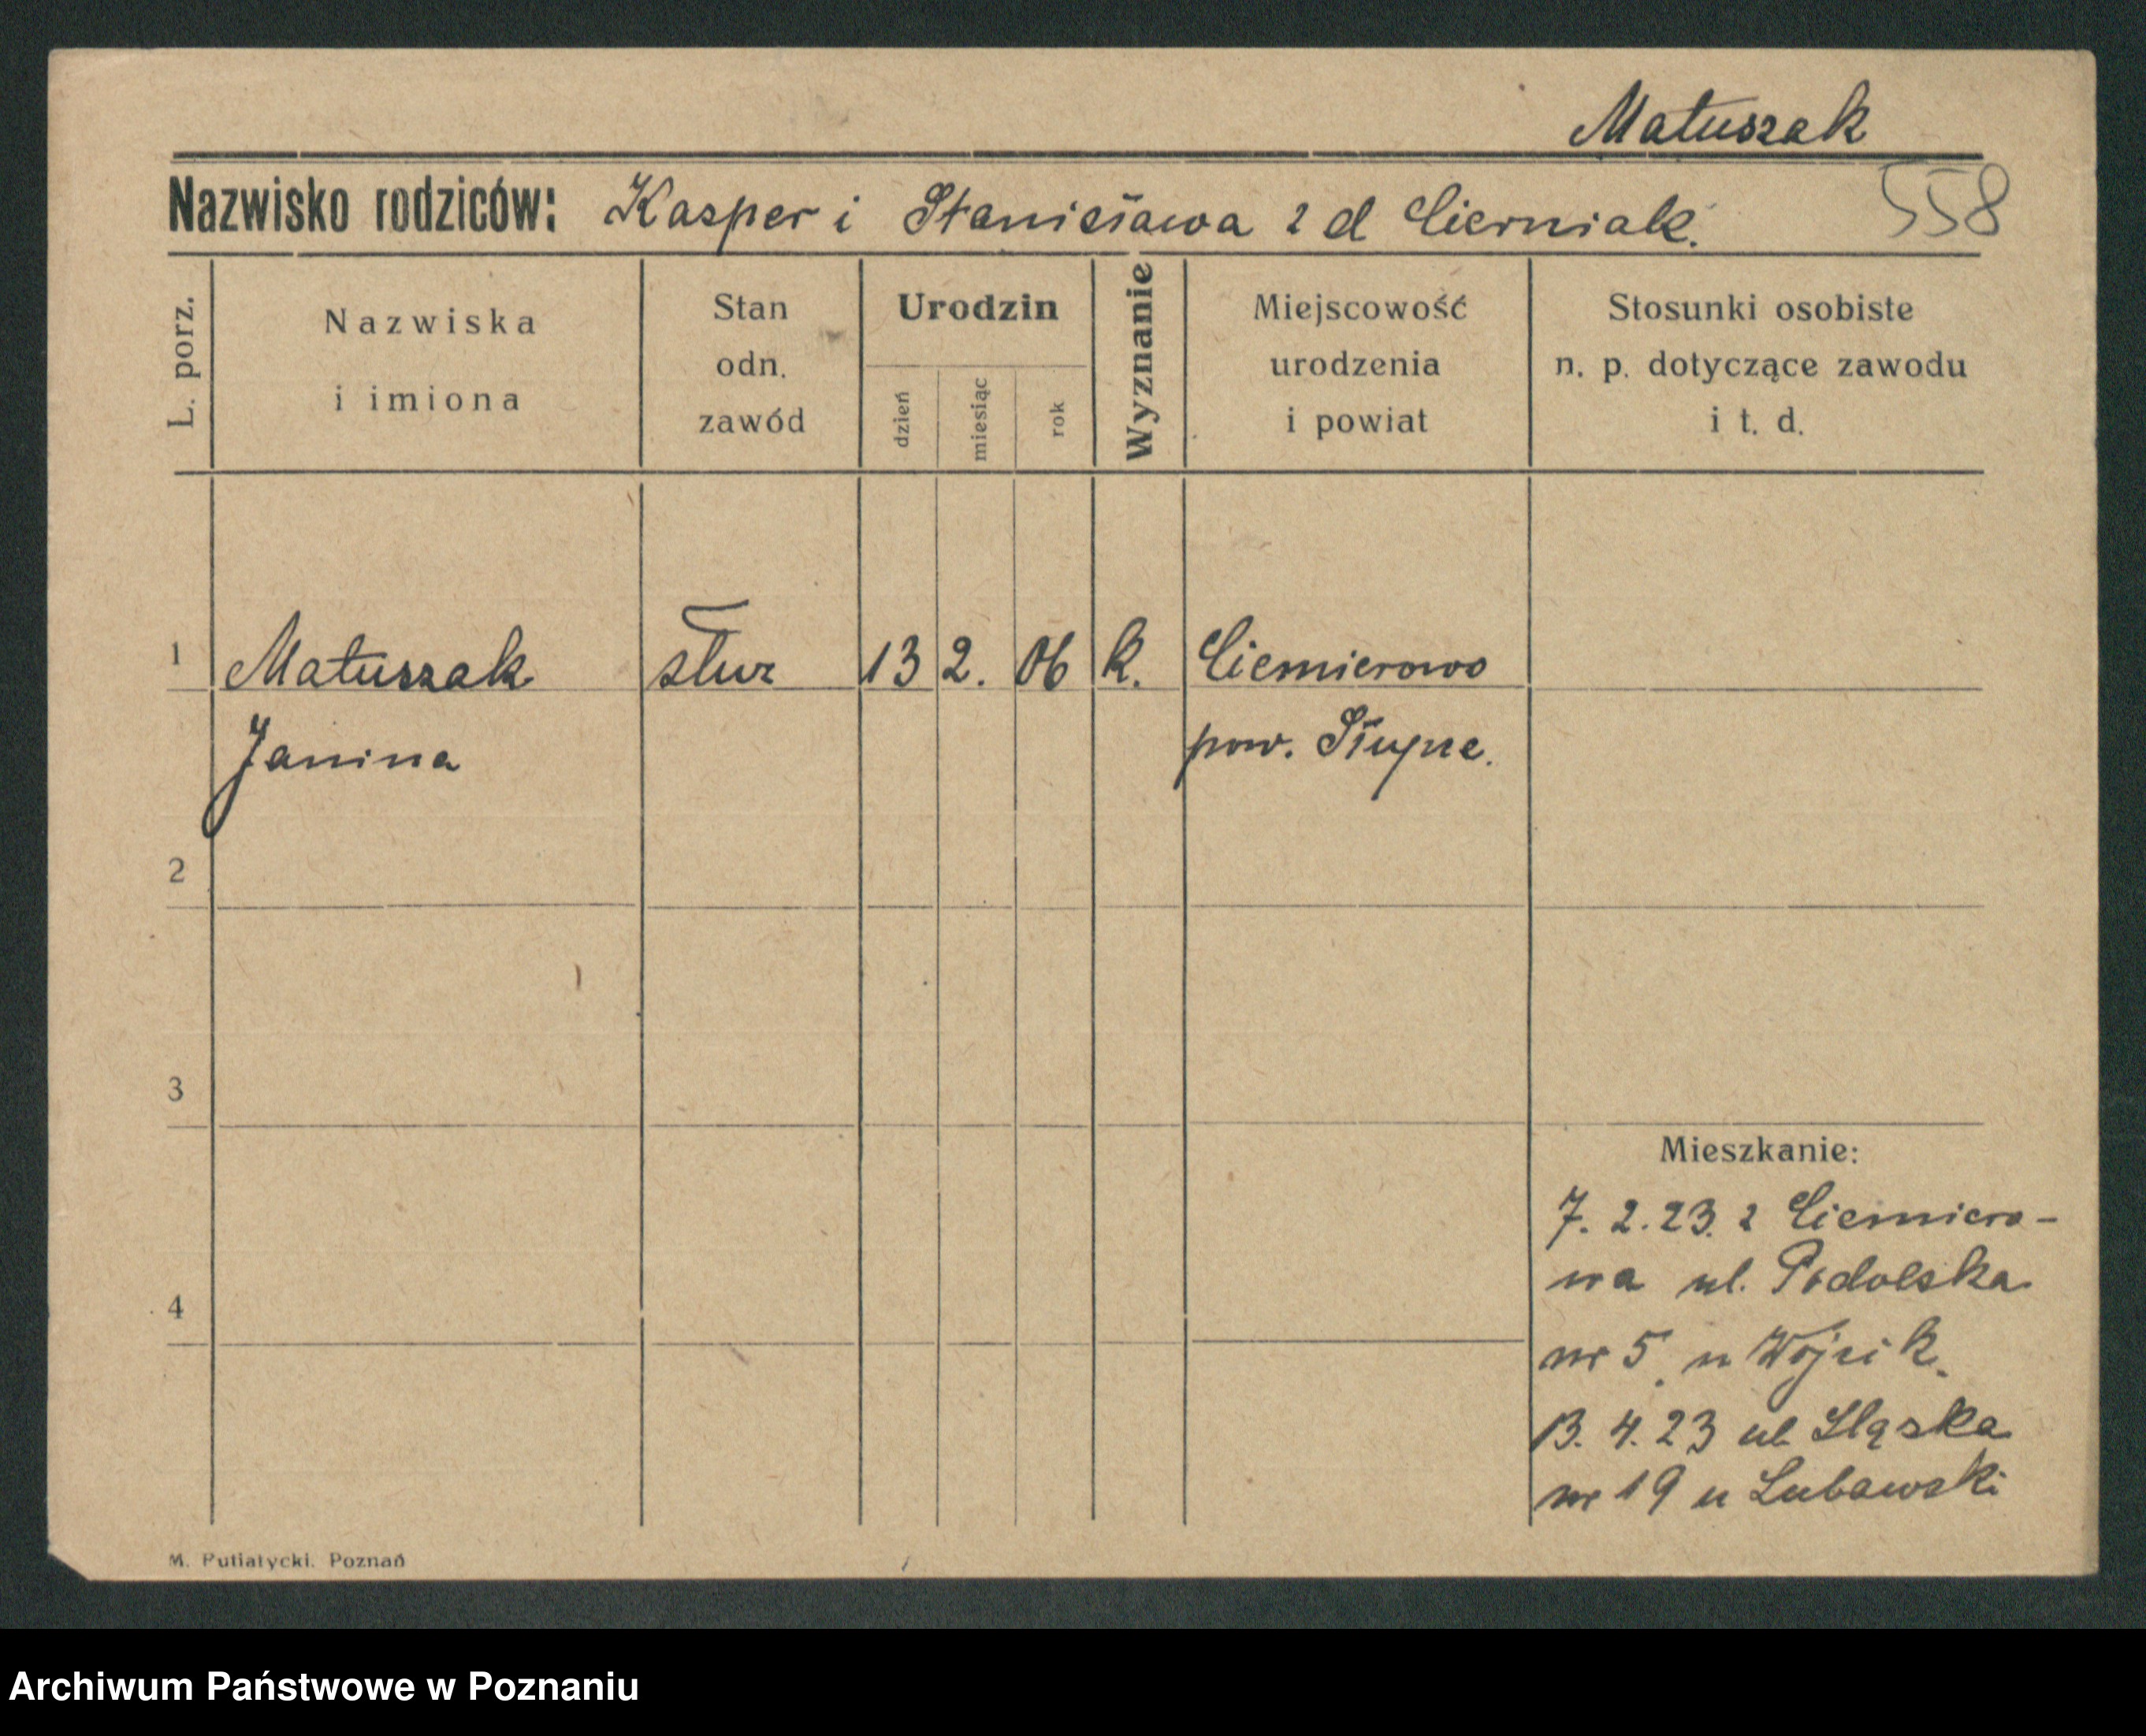 Matuszak
Nazwisko rodziców: Kasper i Stanisława z d Cierniak.
558
L. porz.
Nazwiska
i imiona
Stan
odn.
zawód
Urodzin
dzień
miesiąc
rok
Wyznanie
Miejscowość
urodzenia
i powiat
Stosunki osobiste
n. p. dotyczące zawodu
i t. d.
1 Matuszak służ 13 2. 06 k. Ciemierowo
Janina pow. Słupce.
2
3
4
Mieszkanie:
7. 2. 23. z Ciemiero-
wa ul. Podolska
nr 5. u Wójcik.
13. 4. 23 ul. Śląska
nr 19 u Lubawski
M. Putiatycki. Poznań
Archiwum Państwowe w Poznaniu